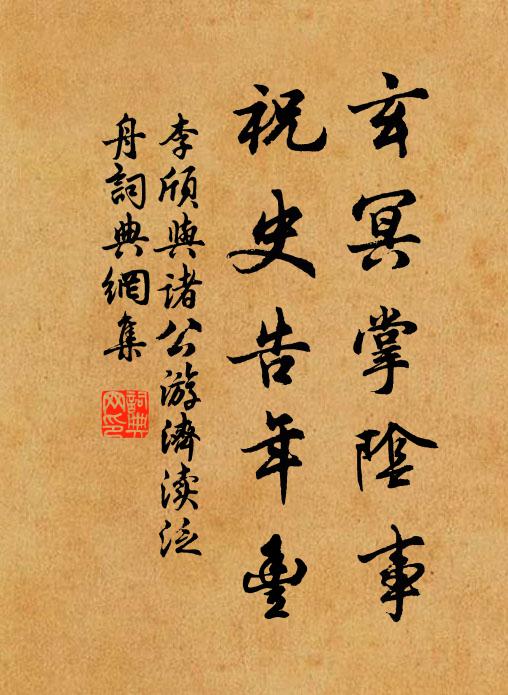 玄冥掌陰事
祝史告年豐
李頎與諸公游濟瀆泛
舟詞典網集
詞典
网印